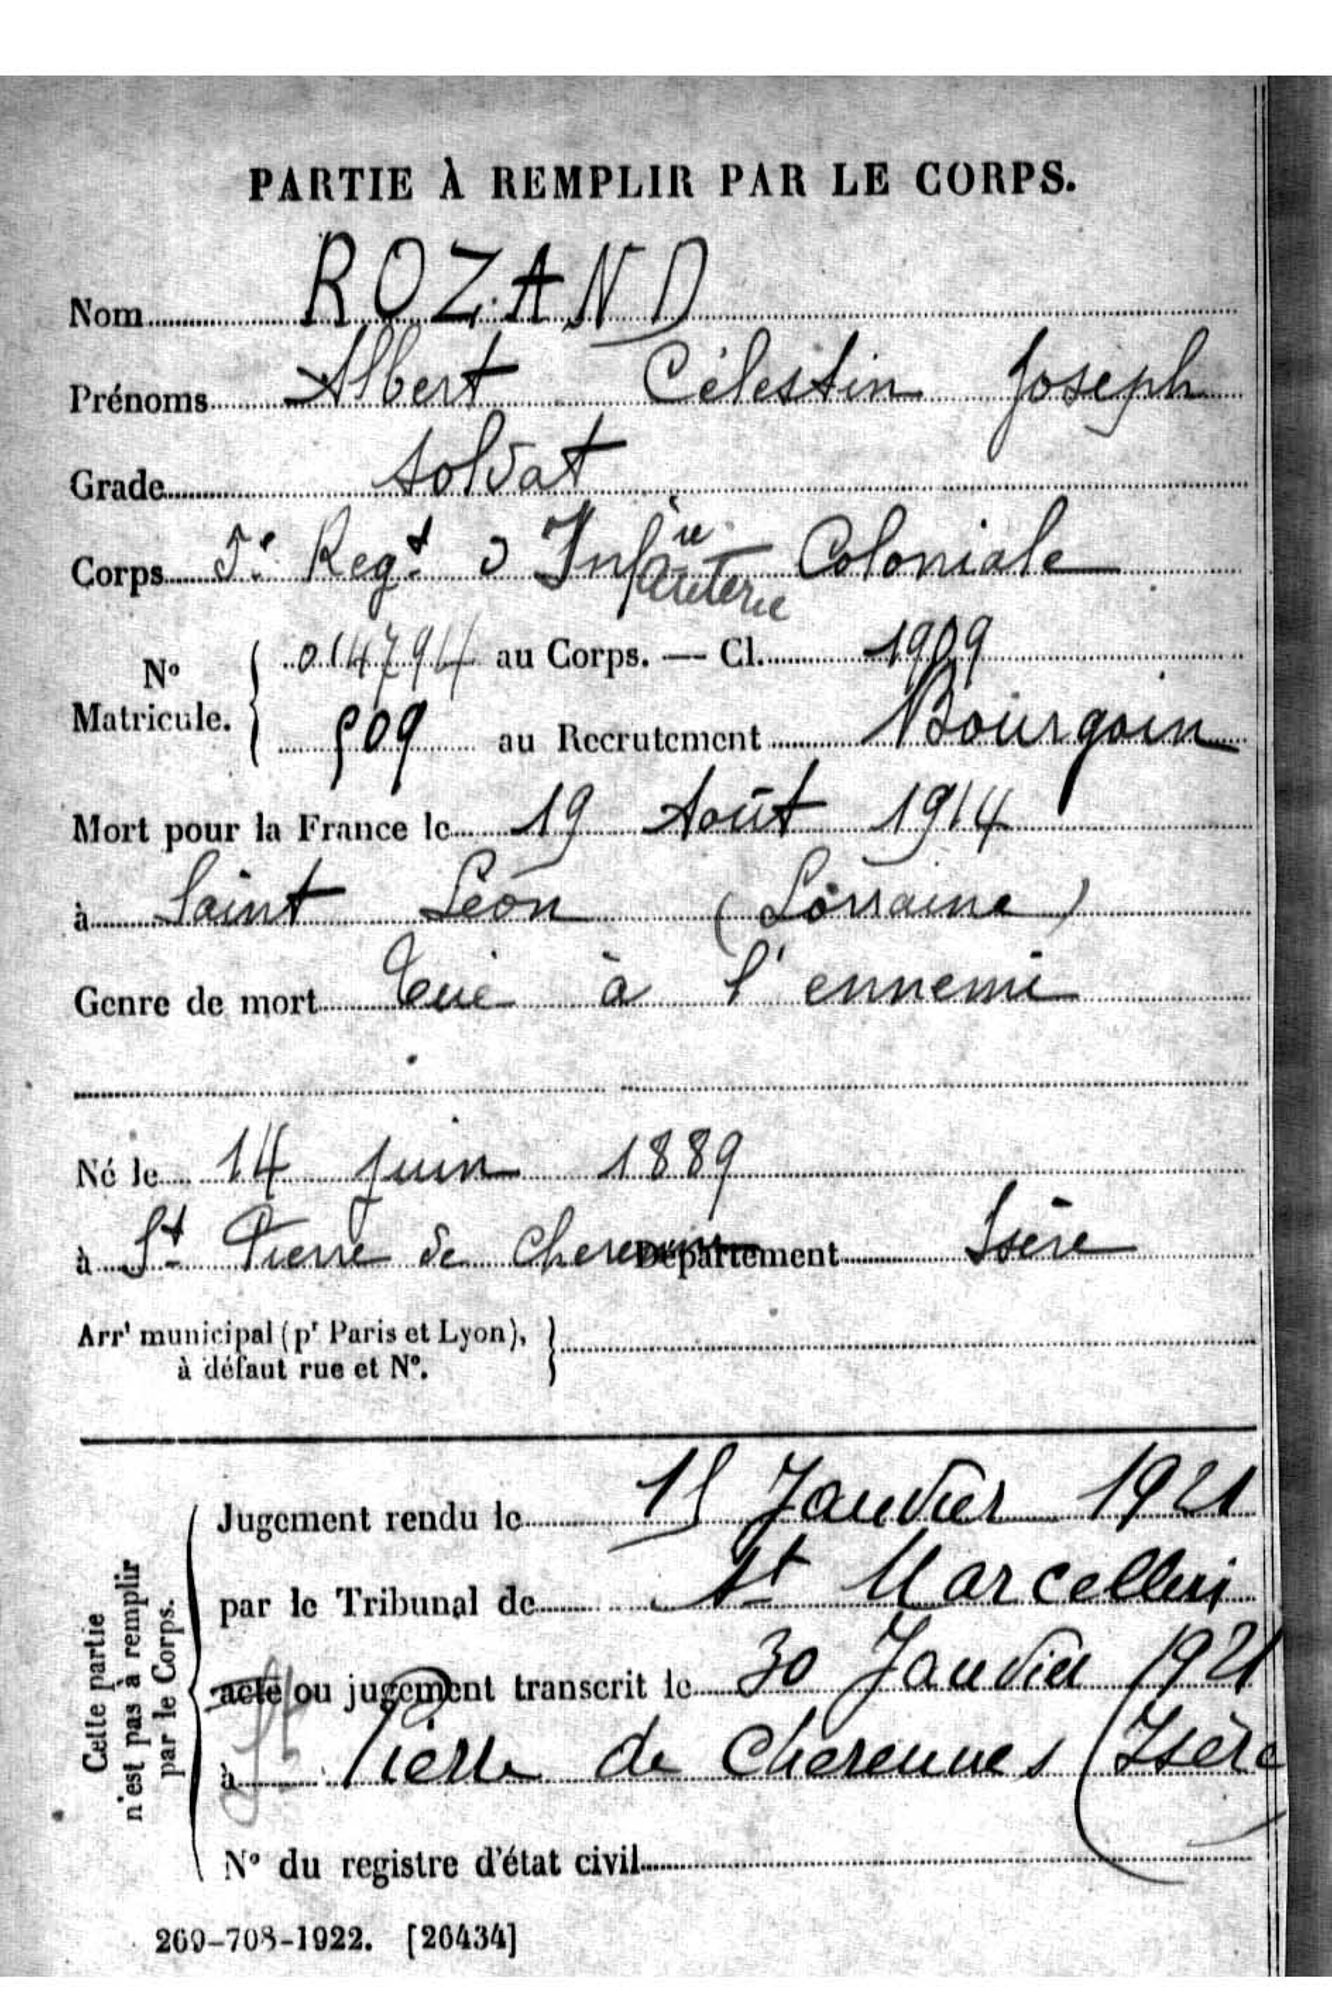 PARTIE À REMPLIR PAR LE CORPS.
Nom ROZAND
Prénoms Albert Célestin Joseph
Grade soldat
Corps 5e Regt d'Infie Coloniale
anterie
No Matricule. { 014794 au Corps. — Cl. 1909
909 au Recrutement Bourgoin
Mort pour la France le 19 Août 1914
à Saint Léon (Lorraine)
Genre de mort Tué à l'ennemi
Né le 14 juin 1889
à St Pierre de Cherennes Département Isère
Arrt municipal (pr Paris et Lyon), }
à défaut rue et No.
Cette partie
n'est pas à remplir
par le Corps.
Jugement rendu le 15 Janvier 1921
par le Tribunal de St Marcellin
acte ou jugement transcrit le 30 Janvier 1921
à St Pierre de Cherennes (Isère
No du registre d'état civil
269-708-1922. [26434]